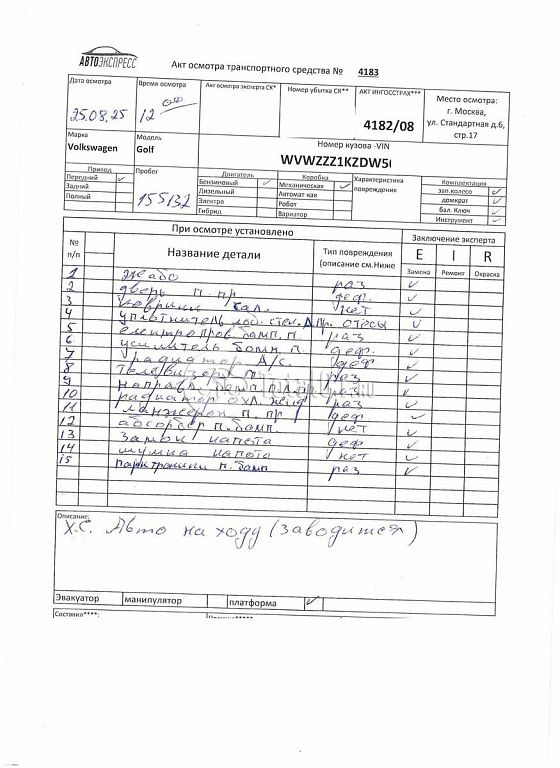 АВТОЭКСПРЕСС
Акт осмотра транспортного средства № 4183
Дата осмотра Время осмотра Акт осмотра эксперта СК* Номер убытка СК** АКТ ИНГОССТРАХ*** Место осмотра:
25.08.25 12 00 4182/08 г. Москва,
ул. Стандартная д.6,
стр.17
Марка Модель Номер кузова -VIN
Volkswagen Golf WVWZZZ1KZDW5
Привод Пробег Двигатель Коробка Характеристика повреждения Комплектация
Передний 155132 Бензиновый Механическая зап.колесо
Задний Дизельный Автомат-кая домкрат
Полный Электро Робот бал. Ключ
Гибрид Вариатор Инструмент
При осмотре установлено Заключение эксперта
№ п/п Название детали Тип повреждения (описание см.Ниже E I R
Замена Ремонт Окраска
1 Жабо раз
2 дверь п. пр. деф.
3 коврики бал. нет
4 уплотнитель лоб. стек. Д.пр. отесы
5 п. раз
6 усилитель бамп. п. деф.
7 радиатор А/С. деф
8 Телевизер раз
9 направл. бамп. п.л.п раз
10 радиатор охл. раз
11 ланжерон п. пр деф
12 абсорбер п. бамп. нет
13 Замок капота деф
14 шумка капота нет
15 парктроники п. бамп раз
Описание:
Х.С. Авто на ходу (заводится)
Эвакуатор манипулятор платформа
Составил****: